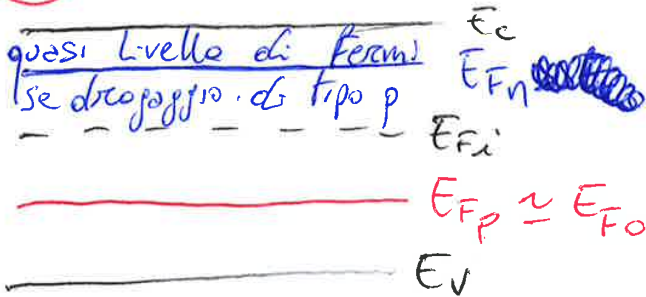 E_c
quasi livello di Fermi
E_Fn
se drogaggio di tipo p
E_Fi
E_Fp ≃ E_F0
E_V